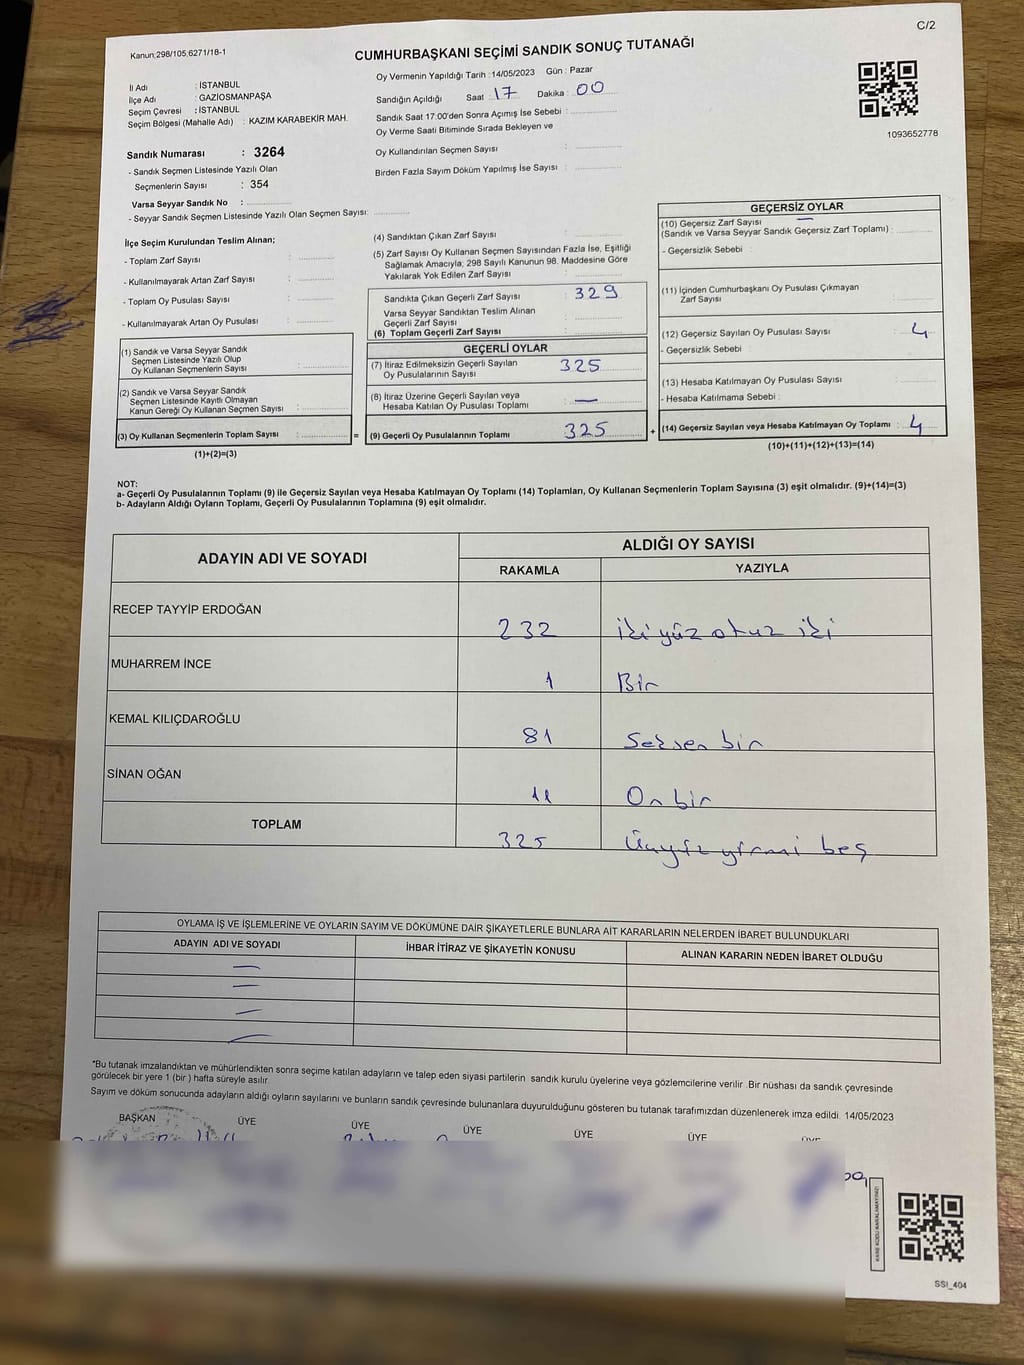 C/2
Kanun:298/105,6271/18-1
CUMHURBAŞKANI SEÇİMİ SANDIK SONUÇ TUTANAĞI
İl Adı : İSTANBUL
İlçe Adı : GAZİOSMANPAŞA
Seçim Çevresi : İSTANBUL
Seçim Bölgesi (Mahalle Adı) : KAZIM KARABEKİR MAH.
Sandık Numarası : 3264
- Sandık Seçmen Listesinde Yazılı Olan
Seçmenlerin Sayısı : 354
Varsa Seyyar Sandık No :
- Seyyar Sandık Seçmen Listesinde Yazılı Olan Seçmen Sayısı:
Oy Vermenin Yapıldığı Tarih : 14/05/2023 Gün : Pazar
Sandığın Açıldığı Saat 17 Dakika : 00
Sandık Saat 17:00'den Sonra Açımış İse Sebebi :
Oy Verme Saati Bitiminde Sırada Bekleyen ve
Oy Kullandırılan Seçmen Sayısı :
Birden Fazla Sayım Döküm Yapılmış İse Sayısı :
1093652778
İlçe Seçim Kurulundan Teslim Alınan;
- Toplam Zarf Sayısı :
- Kullanılmayarak Artan Zarf Sayısı :
- Toplam Oy Pusulası Sayısı :
- Kullanılmayarak Artan Oy Pusulası :
(1) Sandık ve Varsa Seyyar Sandık
Seçmen Listesinde Yazılı Olup
Oy Kullanan Seçmenlerin Sayısı :
(2) Sandık ve Varsa Seyyar Sandık
Seçmen Listesinde Kayıtlı Olmayan
Kanun Gereği Oy Kullanan Seçmen Sayısı :
(3) Oy Kullanan Seçmenlerin Toplam Sayısı : =
(1)+(2)=(3)
(4) Sandıktan Çıkan Zarf Sayısı :
(5) Zarf Sayısı Oy Kullanan Seçmen Sayısından Fazla İse, Eşitliği
Sağlamak Amacıyla; 298 Sayılı Kanunun 98. Maddesine Göre
Yakılarak Yok Edilen Zarf Sayısı :
Sandıkta Çıkan Geçerli Zarf Sayısı : 329
Varsa Seyyar Sandıktan Teslim Alınan
Geçerli Zarf Sayısı :
(6) Toplam Geçerli Zarf Sayısı :
GEÇERLİ OYLAR
(7) İtiraz Edilmeksizin Geçerli Sayılan
Oy Pusulalarının Sayısı : 325
(8) İtiraz Üzerine Geçerli Sayılan veya
Hesaba Katılan Oy Pusulası Toplamı : —
(9) Geçerli Oy Pusulalarının Toplamı : 325 +
GEÇERSİZ OYLAR
(10) Geçersiz Zarf Sayısı —
(Sandık ve Varsa Seyyar Sandık Geçersiz Zarf Toplamı) :
- Geçersizlik Sebebi :
(11) İçinden Cumhurbaşkanı Oy Pusulası Çıkmayan
Zarf Sayısı :
(12) Geçersiz Sayılan Oy Pusulası Sayısı : 4
- Geçersizlik Sebebi :
(13) Hesaba Katılmayan Oy Pusulası Sayısı :
- Hesaba Katılmama Sebebi :
(14) Geçersiz Sayılan veya Hesaba Katılmayan Oy Toplamı : 4
(10)+(11)+(12)+(13)=(14)
NOT:
a- Geçerli Oy Pusulalarının Toplamı (9) ile Geçersiz Sayılan veya Hesaba Katılmayan Oy Toplamı (14) Toplamları, Oy Kullanan Seçmenlerin Toplam Sayısına (3) eşit olmalıdır. (9)+(14)=(3)
b- Adayların Aldığı Oyların Toplamı, Geçerli Oy Pusulalarının Toplamına (9) eşit olmalıdır.
ADAYIN ADI VE SOYADI
ALDIĞI OY SAYISI
RAKAMLA YAZIYLA
RECEP TAYYİP ERDOĞAN 232 iki yüz otuz iki
MUHARREM İNCE 1 Bir
KEMAL KILIÇDAROĞLU 81 Seksen bir
SİNAN OĞAN 11 On bir
TOPLAM 325 Üçyüz yirmi beş
OYLAMA İŞ VE İŞLEMLERİNE VE OYLARIN SAYIM VE DÖKÜMÜNE DAİR ŞİKAYETLERLE BUNLARA AİT KARARLARIN NELERDEN İBARET BULUNDUKLARI
ADAYIN ADI VE SOYADI İHBAR İTİRAZ VE ŞİKAYETİN KONUSU ALINAN KARARIN NEDEN İBARET OLDUĞU
*Bu tutanak imzalandıktan ve mühürlendikten sonra seçime katılan adayların ve talep eden siyasi partilerin sandık kurulu üyelerine veya gözlemcilerine verilir .Bir nüshası da sandık çevresinde
görülecek bir yere 1 (bir ) hafta süreyle asılır.
Sayım ve döküm sonucunda adayların aldığı oyların sayılarını ve bunların sandık çevresinde bulunanlara duyurulduğunu gösteren bu tutanak tarafımızdan düzenlenerek imza edildi. 14/05/2023
BAŞKAN ÜYE ÜYE ÜYE ÜYE ÜYE
KARE KODU KARALAMAYINIZ!
SSI_404